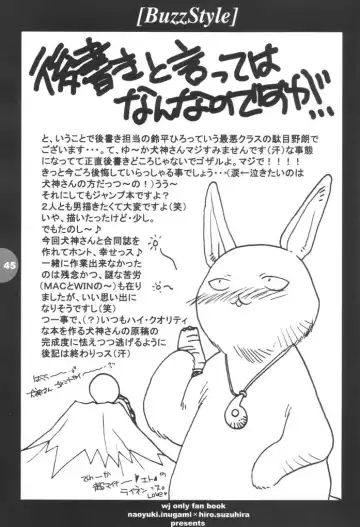 [BuzzStyle]
後書きと言っては
なんなのですが…
と、いうことで後書き担当の鈴平ひろっていう最悪クラスの駄目野朗で
ございます・・・。て、ゆ～か犬神さんマジすみませんです(汗)な事態
になってて正直後書きどころじゃないでゴザルよ。マジで！！！！
きっと今ごろ後悔していらっしゃる事でしょう・・・（涙←泣きたいのは
犬神さんの方だっつ～の！）うう～
それにしてもジャンプ本ですか？
２人とも男描きたくて大変ですよ（笑）
いや、描いたったけど・少し。
でもたのし～♪
今回犬神さんと合同誌を
作れてホント、幸せっス♪
一緒に作業出来なかった
のは残念かつ、謎な苦労
（MACとWINの～）も在り
ましたが、いい思い出に
なりそうですし（笑）
つ一事で、（？）いつもハイ・クオリティ
な本を作る犬神さんの原稿の
完成度に怯えつつ逃げるように
後記は終わりっス（汗）
45
wj only fan book
naoyuki.inugami×hiro.suzuhira
presents